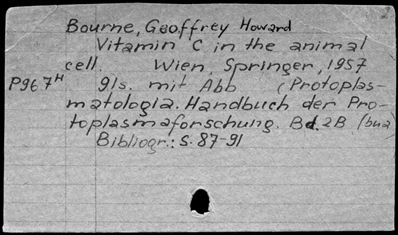 Bourne, Geoffrey Howard
Vitamin C in the animal
cell. Wien, Springer, 1957
P967H 91s. mit Abb (Protoplas-
matologia. Handbuch der Pro-
toplasmaforschung. Bd. 2B (bua)
Bibliogr.: S. 87-91